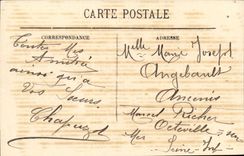 CARTE POSTALE
CORRESPONDANCE
ADRESSE
Toutes mes
Amitiés
ainsi qu'a
vos Sœurs
Chapuzot
Melle Marie Josefat
Angebault
Ancenis
Manuel Richer
Octeville sur
Mer
Seine Inf